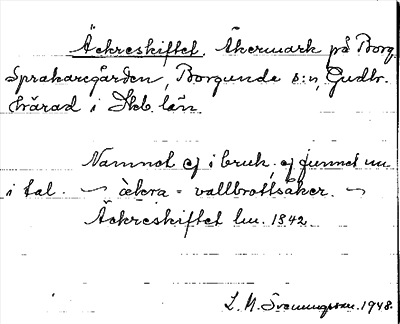 Äckreskiftet. Åkermark på Borg.
Sprakaregården, Borgunda s:n, Gudh.
härad i Skb. län.
Namnet ej i bruk, ej funnet nu
i tal. — àkra = vallbrottsåker. —
Äckreskiftet lm. 1842.
L. M. Svenungsson. 1948.